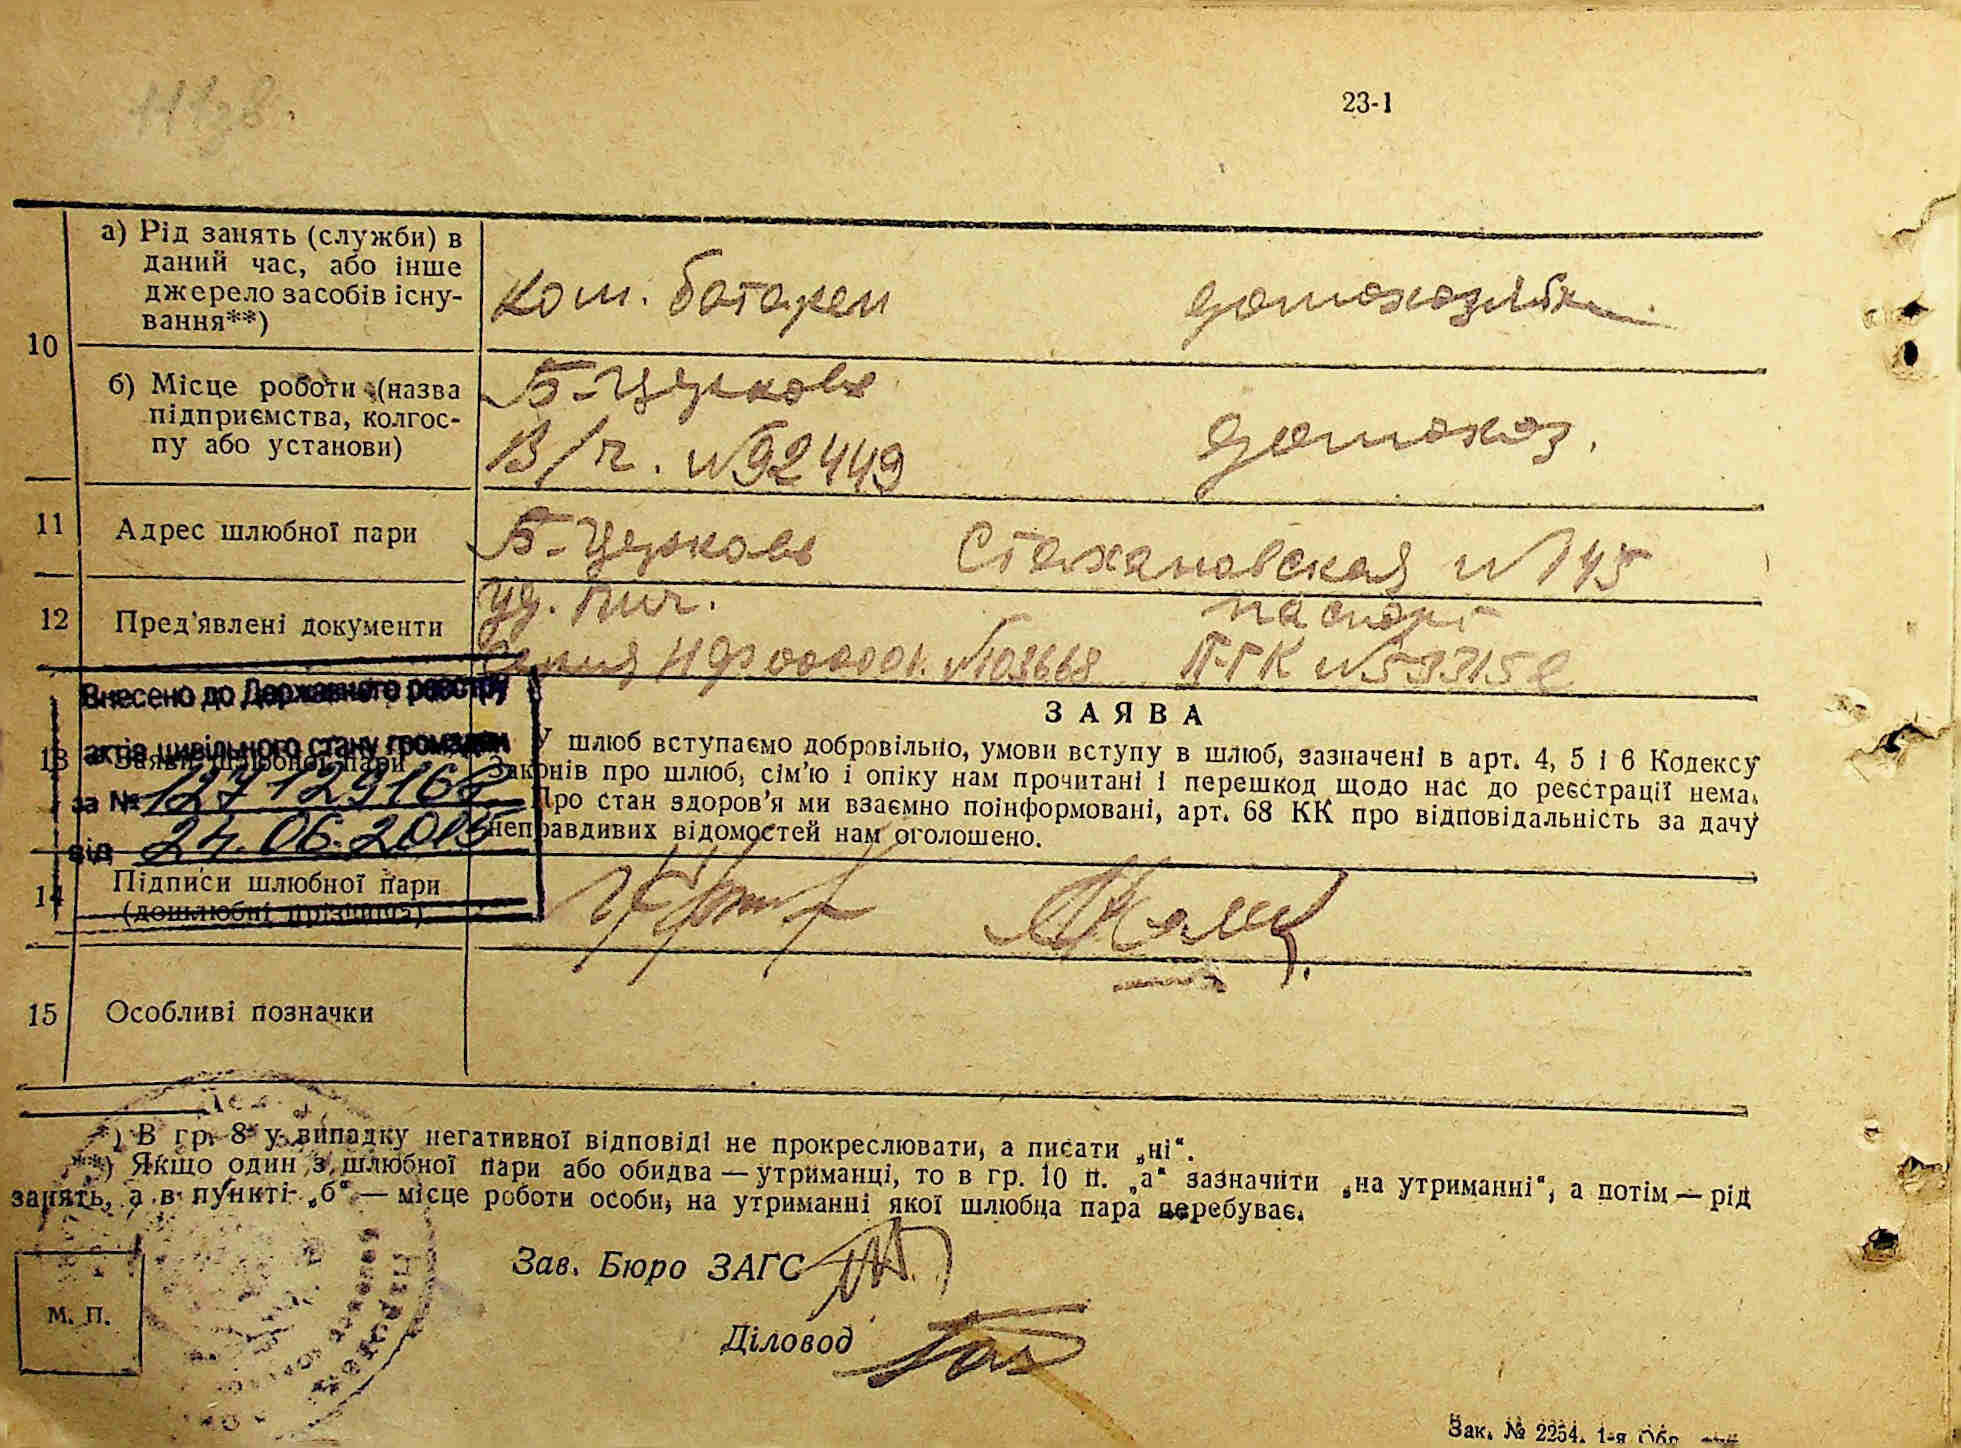 23-1
а) Рід занять (служби) в
даний час, або інше
джерело засобів існу-
вання**)
ком. батареи
домохозяйка
10
б) Місце роботи (назва
підприємства, колгос-
пу або установи)
Б-Церковь
В/ч. №92449
домохоз.
11
Адрес шлюбної пари
Б-Церковь Стахановская №145
12
Пред'явлені документи
уд. лич.
паспорт
Серия НФ 00000 №103668
Внесено до Державного реєстру
актів цивільного стану громадян
за № 127129168
від 24.06.2015
13
Заява шлюбної пари
ЗАЯВА
У шлюб вступаємо добровільно, умови вступу в шлюб, зазначені в арт. 4, 5 і 6 Кодексу
Законів про шлюб, сім'ю і опіку нам прочитані і перешкод щодо нас до реєстрації нема.
Про стан здоров'я ми взаємно поінформовані, арт. 68 КК про відповідальність за дачу
неправдивих відомостей нам оголошено.
14
Підписи шлюбної пари
(дошлюбні прізвища)
15
Особливі позначки
*) В гр. 8 у випадку негативної відповіді не прокреслювати, а писати „ні“.
**) Якщо один з шлюбної пари або обидва — утриманці, то в гр. 10 п. „а“ зазначити „на утриманні“, а потім — рід
занять, а в пункті „б“ — місце роботи особи, на утриманні якої шлюбна пара перебуває.
Зав. Бюро ЗАГС
Діловод
М. П.
Зак. № 2254. 1-я Обр